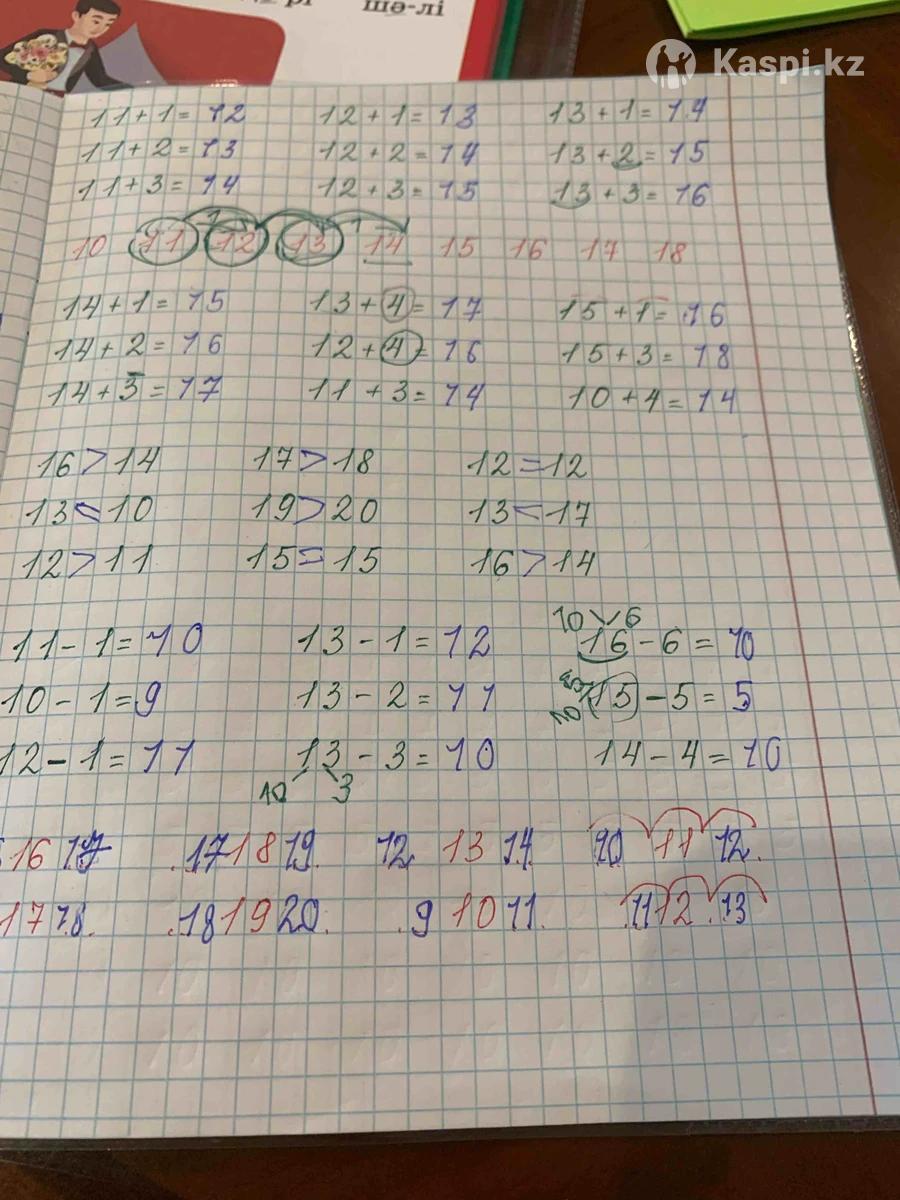 рі шә-лі
Kaspi.kz
11+1=12 12+1=13 13+1=14
11+2=13 12+2=14 13+2=15
11+3=14 12+3=15 13+3=16
1 1
10 11 12 13 14 15 16 17 18
14+1=15 13+4=17 15+1=16
14+2=16 12+4=16 15+3=18
14+3=17 11+3=14 10+4=14
16>14 17>18 12=12
13<10 19>20 13<17
12>11 15=15 16>14
10 6
11-1=10 13-1=12 16-6=10
10-1=9 13-2=11 15-5=5
12-1=11 13-3=10 14-4=10
10 3
16 17 17 18 19 12 13 14 10 11 12
17 18 18 19 20 9 10 11 11 12 13